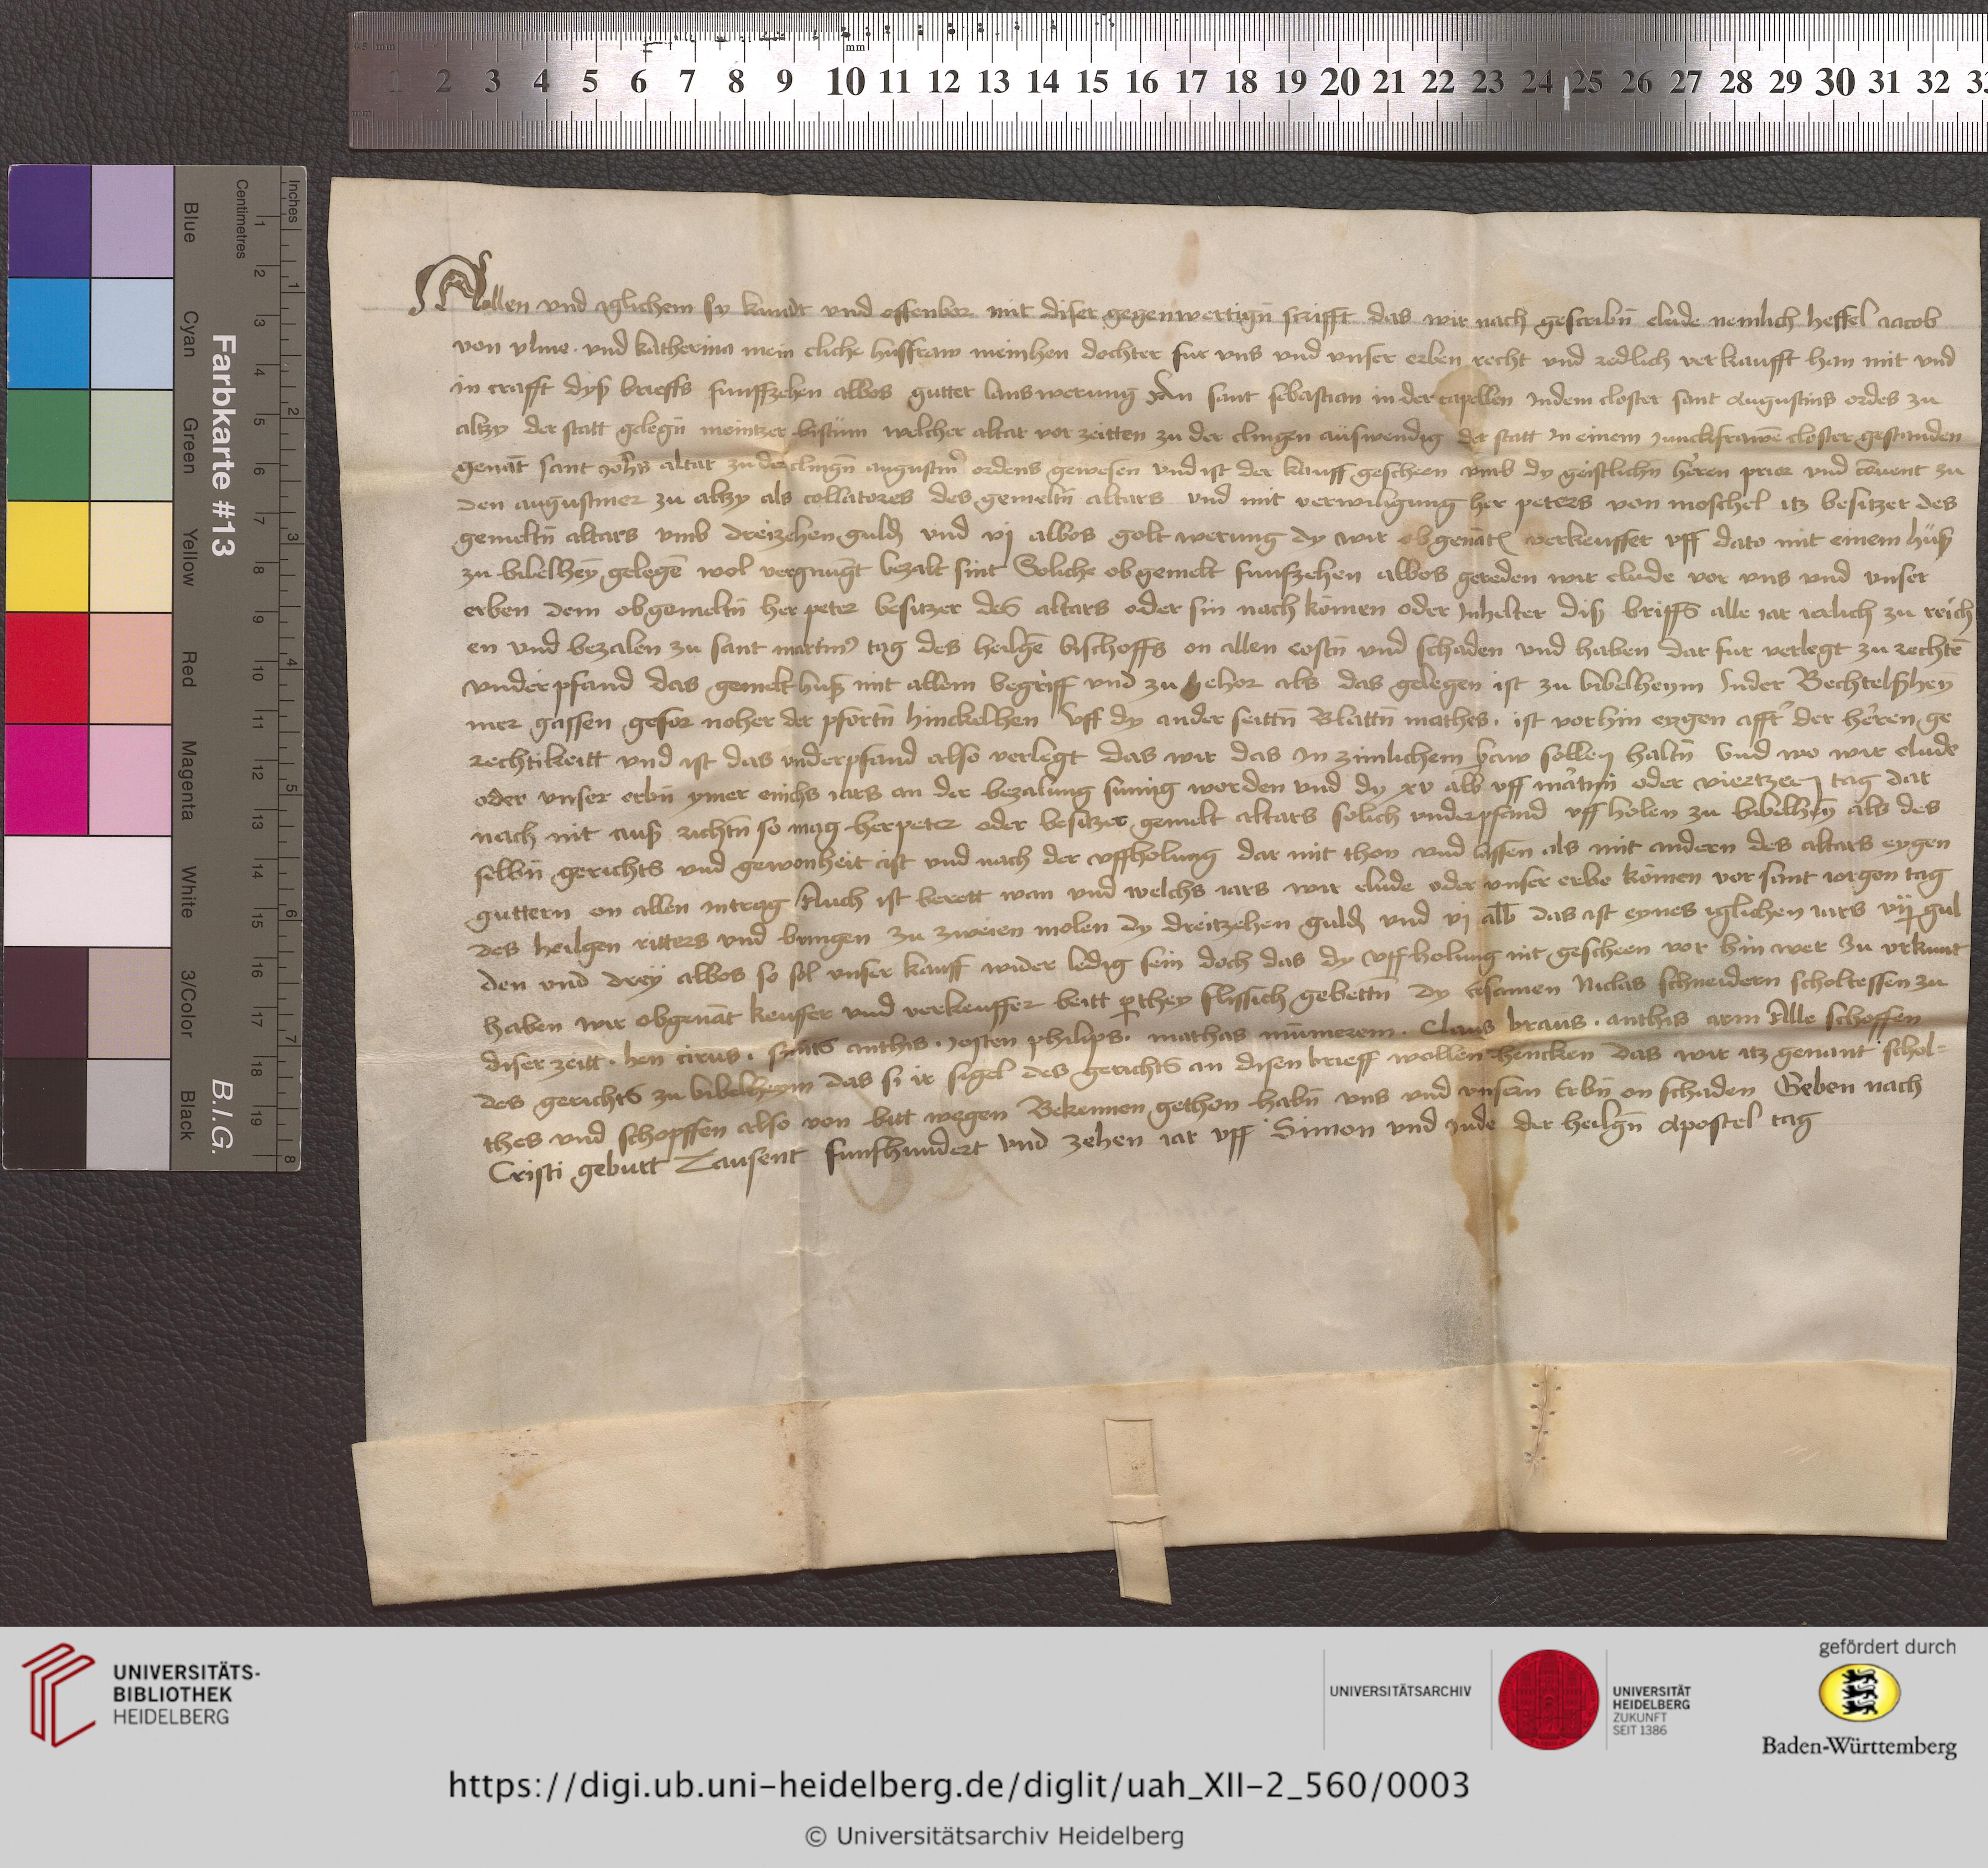 Allen vnd yglichem sy kundt vnd offenbor mit diser gegenwertign̄ scrifft das wir nach gescribn̄ elude nemlich heffel iacob
von vlme vnd katherina mein eliche hussfraw meinhen dochter fur vns vnd vnser erben recht vnd redlich verkaufft han mit vnd
in crafft dyß brieffs funffzehen albos gutter lantswerung An sant sebastian in der capellen Indem closter sant Augustins ordes zu
altzy der statt gelegn̄ meintzer bistüm welcher altar vor zeitten zu der clingen aüswendig der statt In einem Junckfrawē closter gestanden
genāt sant Johs altar zu der clingn̄ augustin ordens gewesen vnd ist der kauff gescheen vmb dy geistlichn̄ heren prior vnd cōuent zu
den augustiner zu altzy als collatores des gemeltn̄ altars vnd mit verwiligung her peters von moschel itz besitzer des
gemeltn̄ altars vmb dreizehen guld vnd vj albos golt werung dy wir obgenāt verkeuffer vff dato mit einem hüß
zu bibelhey gelegē wol vergnugt bezalt sint Soliche obgemelt funfzehen albos gereden wir elude vor vns vnd vnser
erben dem obgemeltn̄ her peter besitzer des altars oder sin nach kōmen oder Inhelter diß briffs alle iar ierlich zu reich
en vnd bezalen zu sant martins tag des heilgē bischoffs on allen costn̄ vnd schaden vnd haben dar fur verlegt zu rechtē
vnderpfand das gemelt huß mit allem begriff vnd zu gehor als das gelegen ist zu bibelheym Inder Bechtelßhey
mer gassen gefor noher der pfortn̄ hinckelhen vff dy ander seittn̄ Blattn̄ mathes . ist vorhin eygen der heren ge
rechtikeitt vnd ist das vnderpfand also verlegt das wir das In zimlichem baw sollen haltn̄ vnd wo wir elude
oder vnser erbn̄ ymer einichs iars an der bezalung sumig worden vnd dy xv alb vff martini oder viertzen tag dar
nach nit auß richtn̄ so mag her peter oder besitzer gemelt altars solich vnderpfand vff holen zu bibelhey als des
selbn̄ gerichts vnd gewonheit ist vnd nach der vffholung dar mit thon vnd lassen als mit andern des altars eygen
guttern on allen intrag Auch ist berett wan vnd welchs iars wir elude oder vnser erbe kōmen vor sant iorgen tag
des heilgen ritters vnd bringen zu zweien molen dy dreitzehen guld vnd vj alb das ist eynes iglichen iars vij gul
den vnd drey albos so sol vnser kauff wider ledig sein doch das dy vffholung nit gescheen vor hin wer Zu vrkunt
haben wir obgenāt keuffer vnd verkeuffer beitt perthey flissich gebettn̄ dy ersamen Niclas schneidern scholtessen zu
diser zeitt . hen cirus . anthis . Josten philips . mathas . Claus braus . anthis arm Alle schoffen
des gerichts zu bibelheym das si ir sigel des gerichts an disen brieff wollen hencken das wir itz genant schol-
thes vnd schopffen also von bitt wegen Bekennen gethon habn̄ vns vnd vnsern Erbn̄ on schaden Geben nach
Cristi geburt Tausent funfhundert vnd zehen iar vff Simon vnd Jude der heilgn̄ Apostel tag
1 2 3 4 5 6 7 8 9 10 11 12 13 14 15 16 17 18 19 20 21 22 23 24 25 26 27 28 29 30 31 32 33
mm
Inches 1 2 3 4 5 6 7 8
Centimetres 1 2 3 4 5 6 7 8 9 10 11 12 13 14 15 16 17 18 19
Farbkarte #13 B.I.G.
Blue Cyan Green Yellow Red Magenta White 3/Color Black
UNIVERSITÄTS-
BIBLIOTHEK
HEIDELBERG
UNIVERSITÄTSARCHIV
UNIVERSITÄT
HEIDELBERG
ZUKUNFT
SEIT 1386
gefördert durch
Baden-Württemberg
https://digi.ub.uni-heidelberg.de/diglit/uah_XII-2_560/0003
© Universitätsarchiv Heidelberg